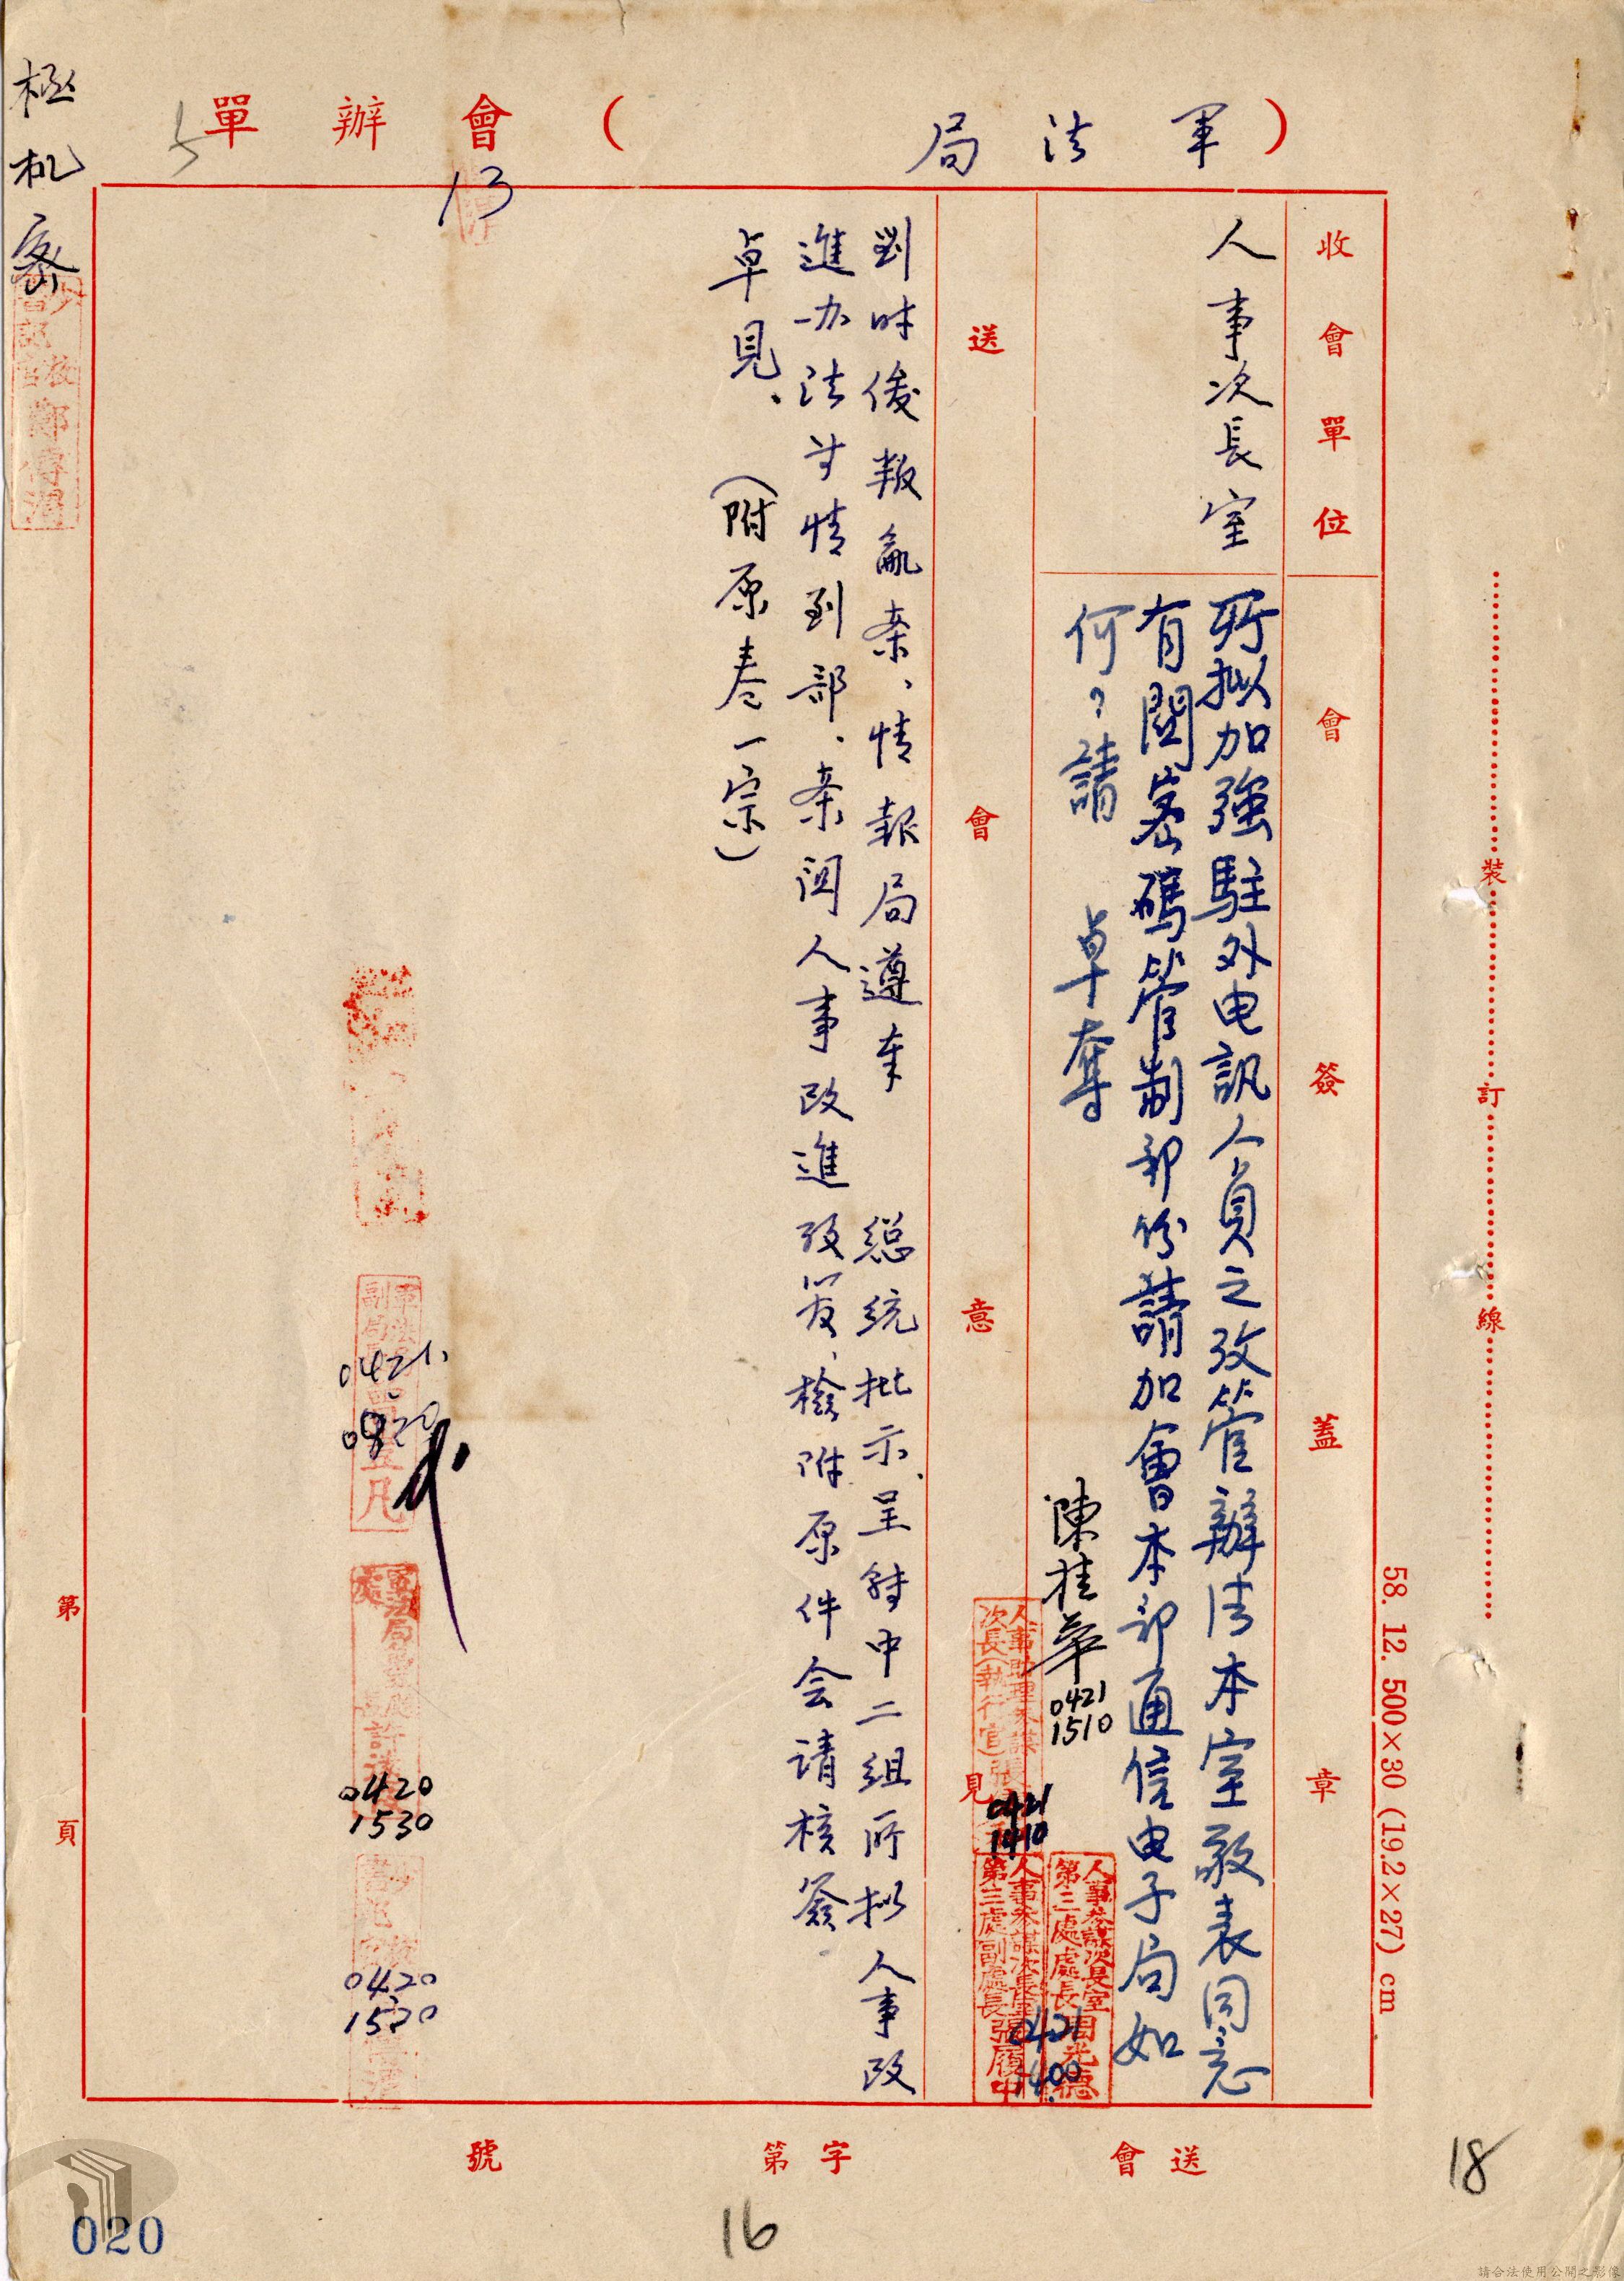 極機密
（軍法局）會辦單
5
13
收會單位
會簽蓋章
人事次長室
所拟加強駐外电訊人員之攷管辦法本室敬表同意
有関密碼管制部份請加會本部通信电子局如
何？請 卓奪
陳桂華 0421 1510
人事參謀次長室第三處處長田光德
0421 1400
0421 1410
人事參謀次長室第三處副處長張履中
送會意見
劉时俊叛亂案、情報局遵奉 總統批示、呈経中二組所拟人事改
進办法等情到部、案関人事改進政策、檢附原件会請核簽
卓見、（附原卷一宗）
0421 0920
0420 1530
0420 1520
送會 字第 號
第 頁
裝 訂 線
58. 12. 500×30 (19.2×27) cm
18
16
020
請合法使用公開之影像